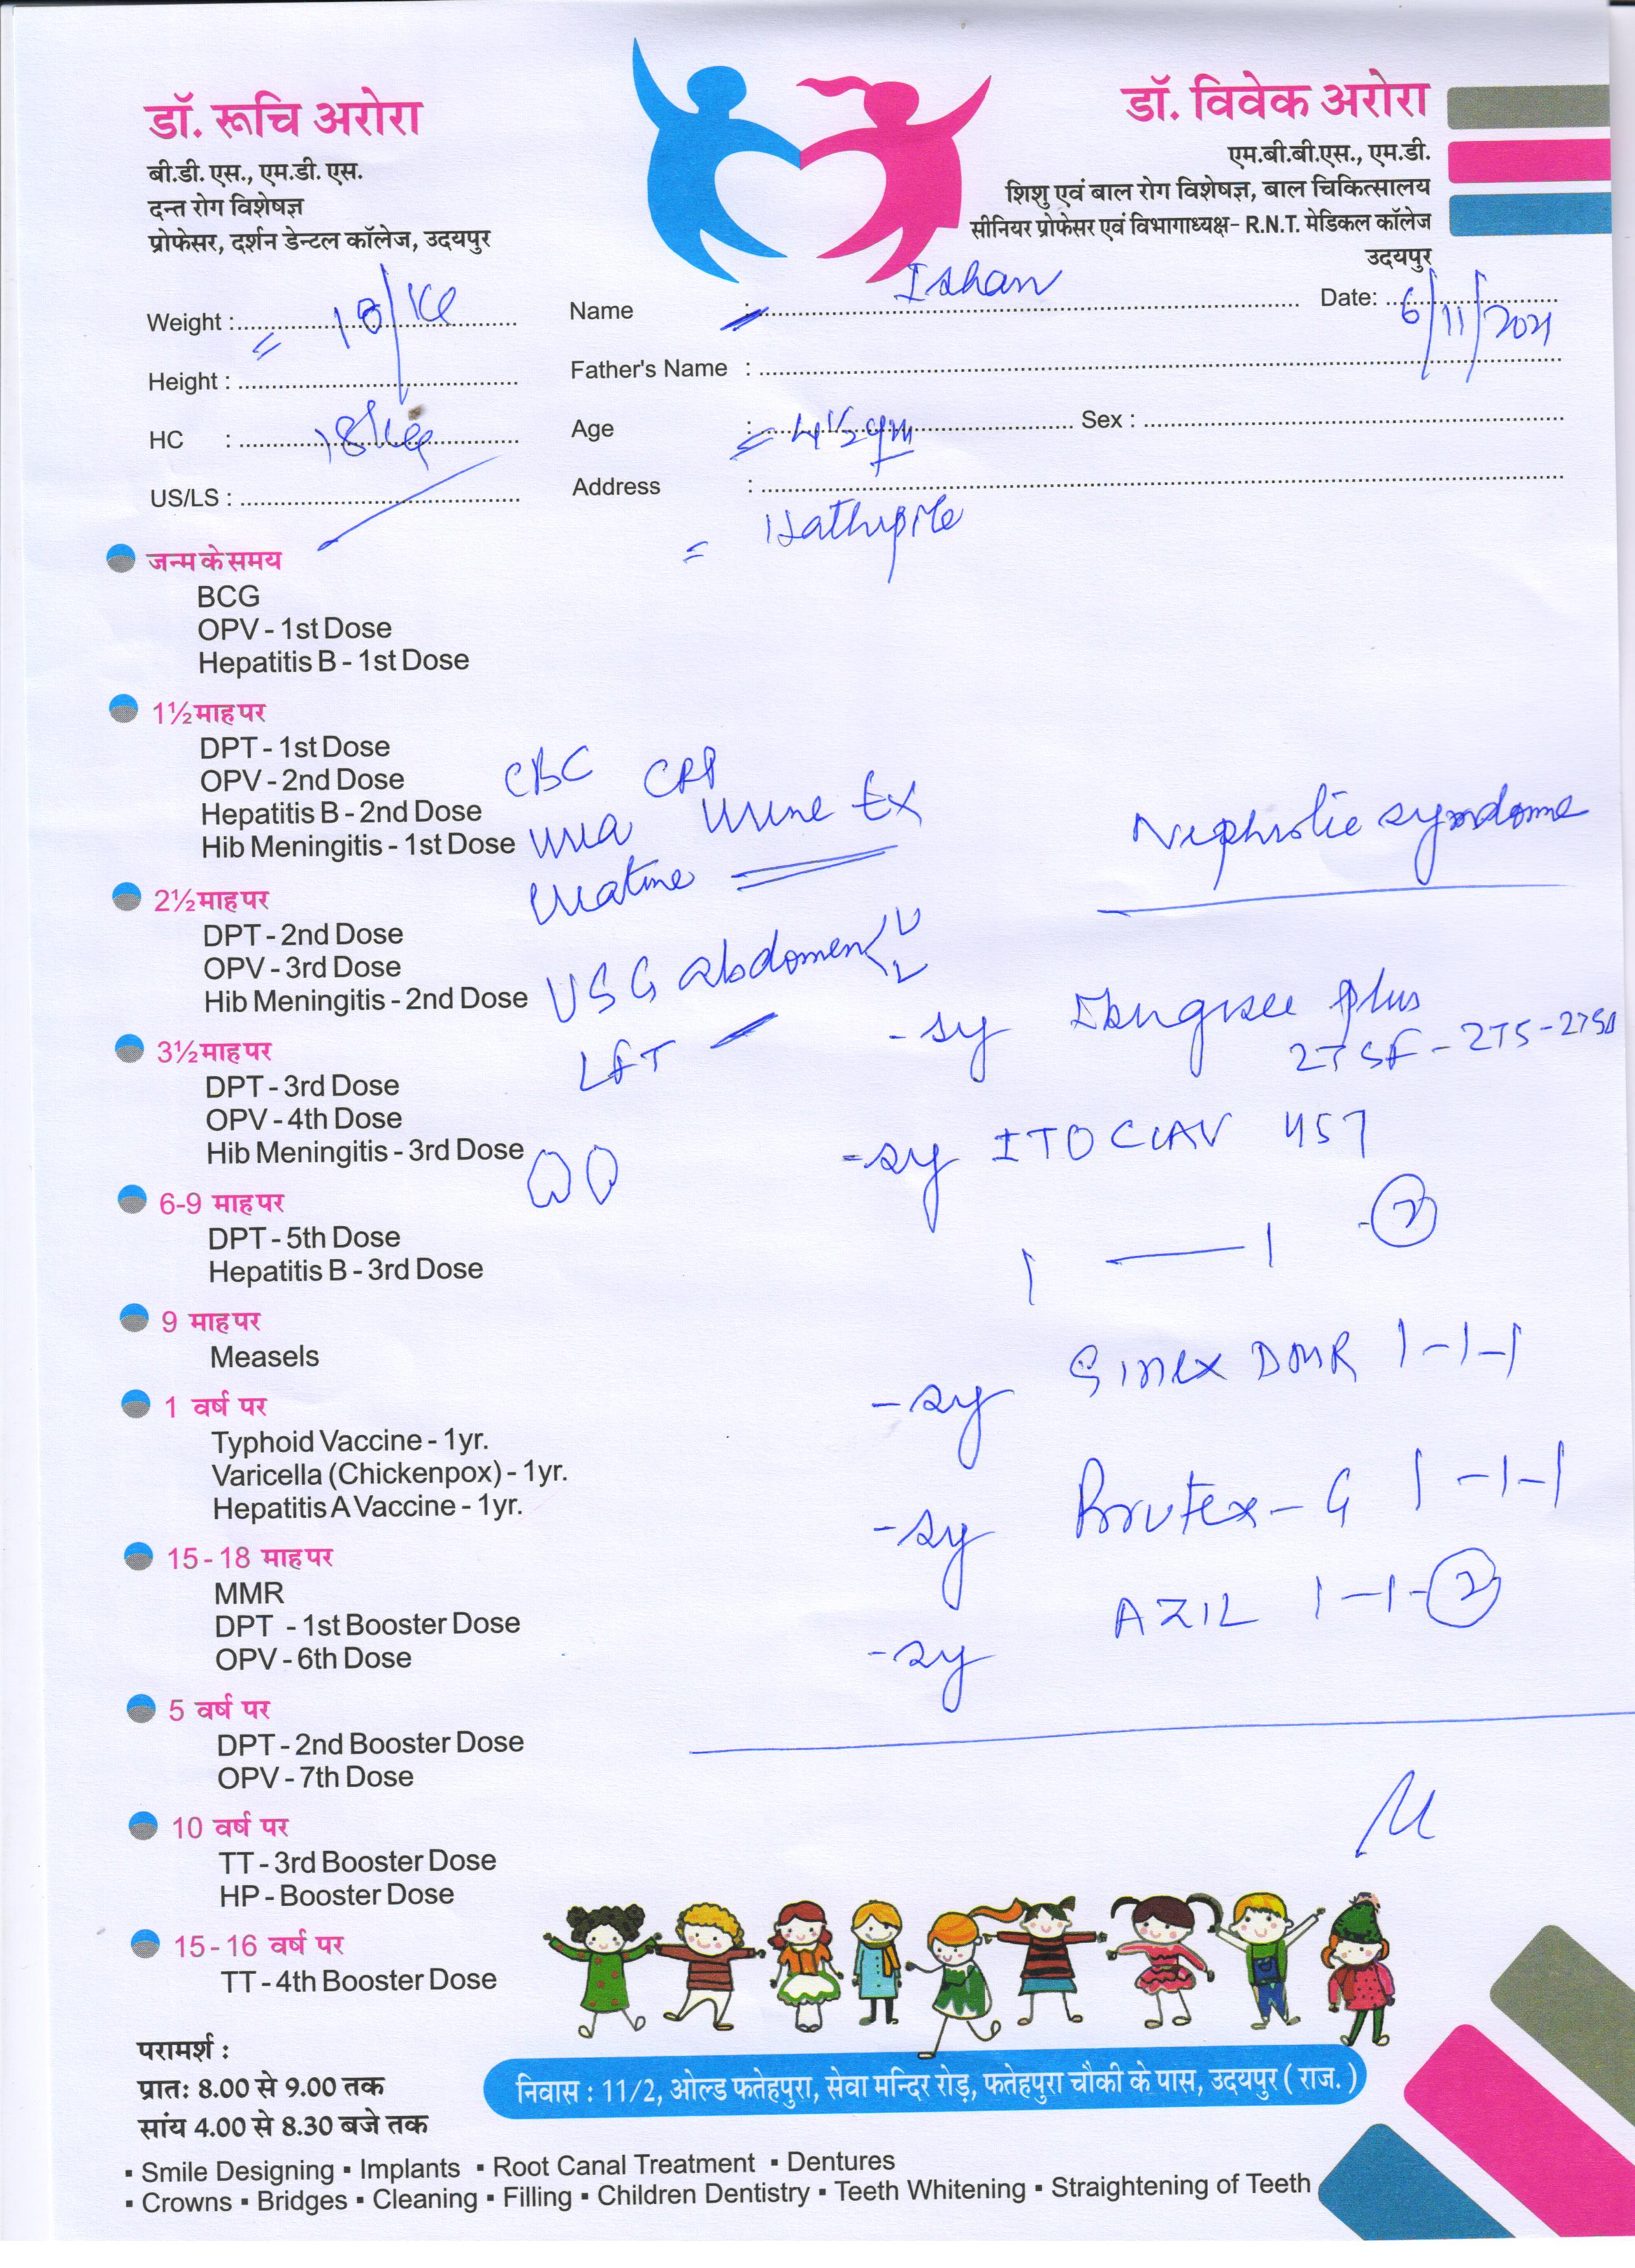 डॉ. रूचि अरोरा
बी.डी. एस., एम.डी. एस.
दन्त रोग विशेषज्ञ
प्रोफेसर, दर्शन डेन्टल कॉलेज, उदयपुर
डॉ. विवेक अरोरा
एम.बी.बी.एस., एम.डी.
शिशु एवं बाल रोग विशेषज्ञ, बाल चिकित्सालय
सीनियर प्रोफेसर एवं विभागाध्यक्ष- R.N.T. मेडिकल कॉलेज
उदयपुर
Weight : 18/Kg
Name : Ishan
Date: 6/11/2021
Height :
Father's Name :
HC : 18/Kg
Age : 4½ yrs
Sex :
US/LS :
Address :
जन्म के समय
BCG
OPV - 1st Dose
Hepatitis B - 1st Dose
1½ माह पर
DPT - 1st Dose
OPV - 2nd Dose
Hepatitis B - 2nd Dose
Hib Meningitis - 1st Dose
2½ माह पर
DPT - 2nd Dose
OPV - 3rd Dose
Hib Meningitis - 2nd Dose
3½ माह पर
DPT - 3rd Dose
OPV - 4th Dose
Hib Meningitis - 3rd Dose
6-9 माह पर
DPT - 5th Dose
Hepatitis B - 3rd Dose
9 माह पर
Measels
1 वर्ष पर
Typhoid Vaccine - 1yr.
Varicella (Chickenpox) - 1yr.
Hepatitis A Vaccine - 1yr.
15-18 माह पर
MMR
DPT - 1st Booster Dose
OPV - 6th Dose
5 वर्ष पर
DPT - 2nd Booster Dose
OPV - 7th Dose
10 वर्ष पर
TT - 3rd Booster Dose
HP - Booster Dose
15-16 वर्ष पर
TT - 4th Booster Dose
CBC CRP
Urea Urine Ex
Creatine
USG abdomen
LFT
Nephrotic syndome
- sy plus
- sy ITOCLAV 457
1 — 1
- sy Sinex DMR 1-1-1
- sy Brutex-G 1-1-1
- sy AZIL 1-1-
परामर्श :
प्रातः 8.00 से 9.00 तक
सांय 4.00 से 8.30 बजे तक
निवास : 11/2, ओल्ड फतेहपुरा, सेवा मन्दिर रोड़, फतेहपुरा चौकी के पास, उदयपुर ( राज. )
▪ Smile Designing ▪ Implants ▪ Root Canal Treatment ▪ Dentures
▪ Crowns ▪ Bridges ▪ Cleaning ▪ Filling ▪ Children Dentistry ▪ Teeth Whitening ▪ Straightening of Teeth